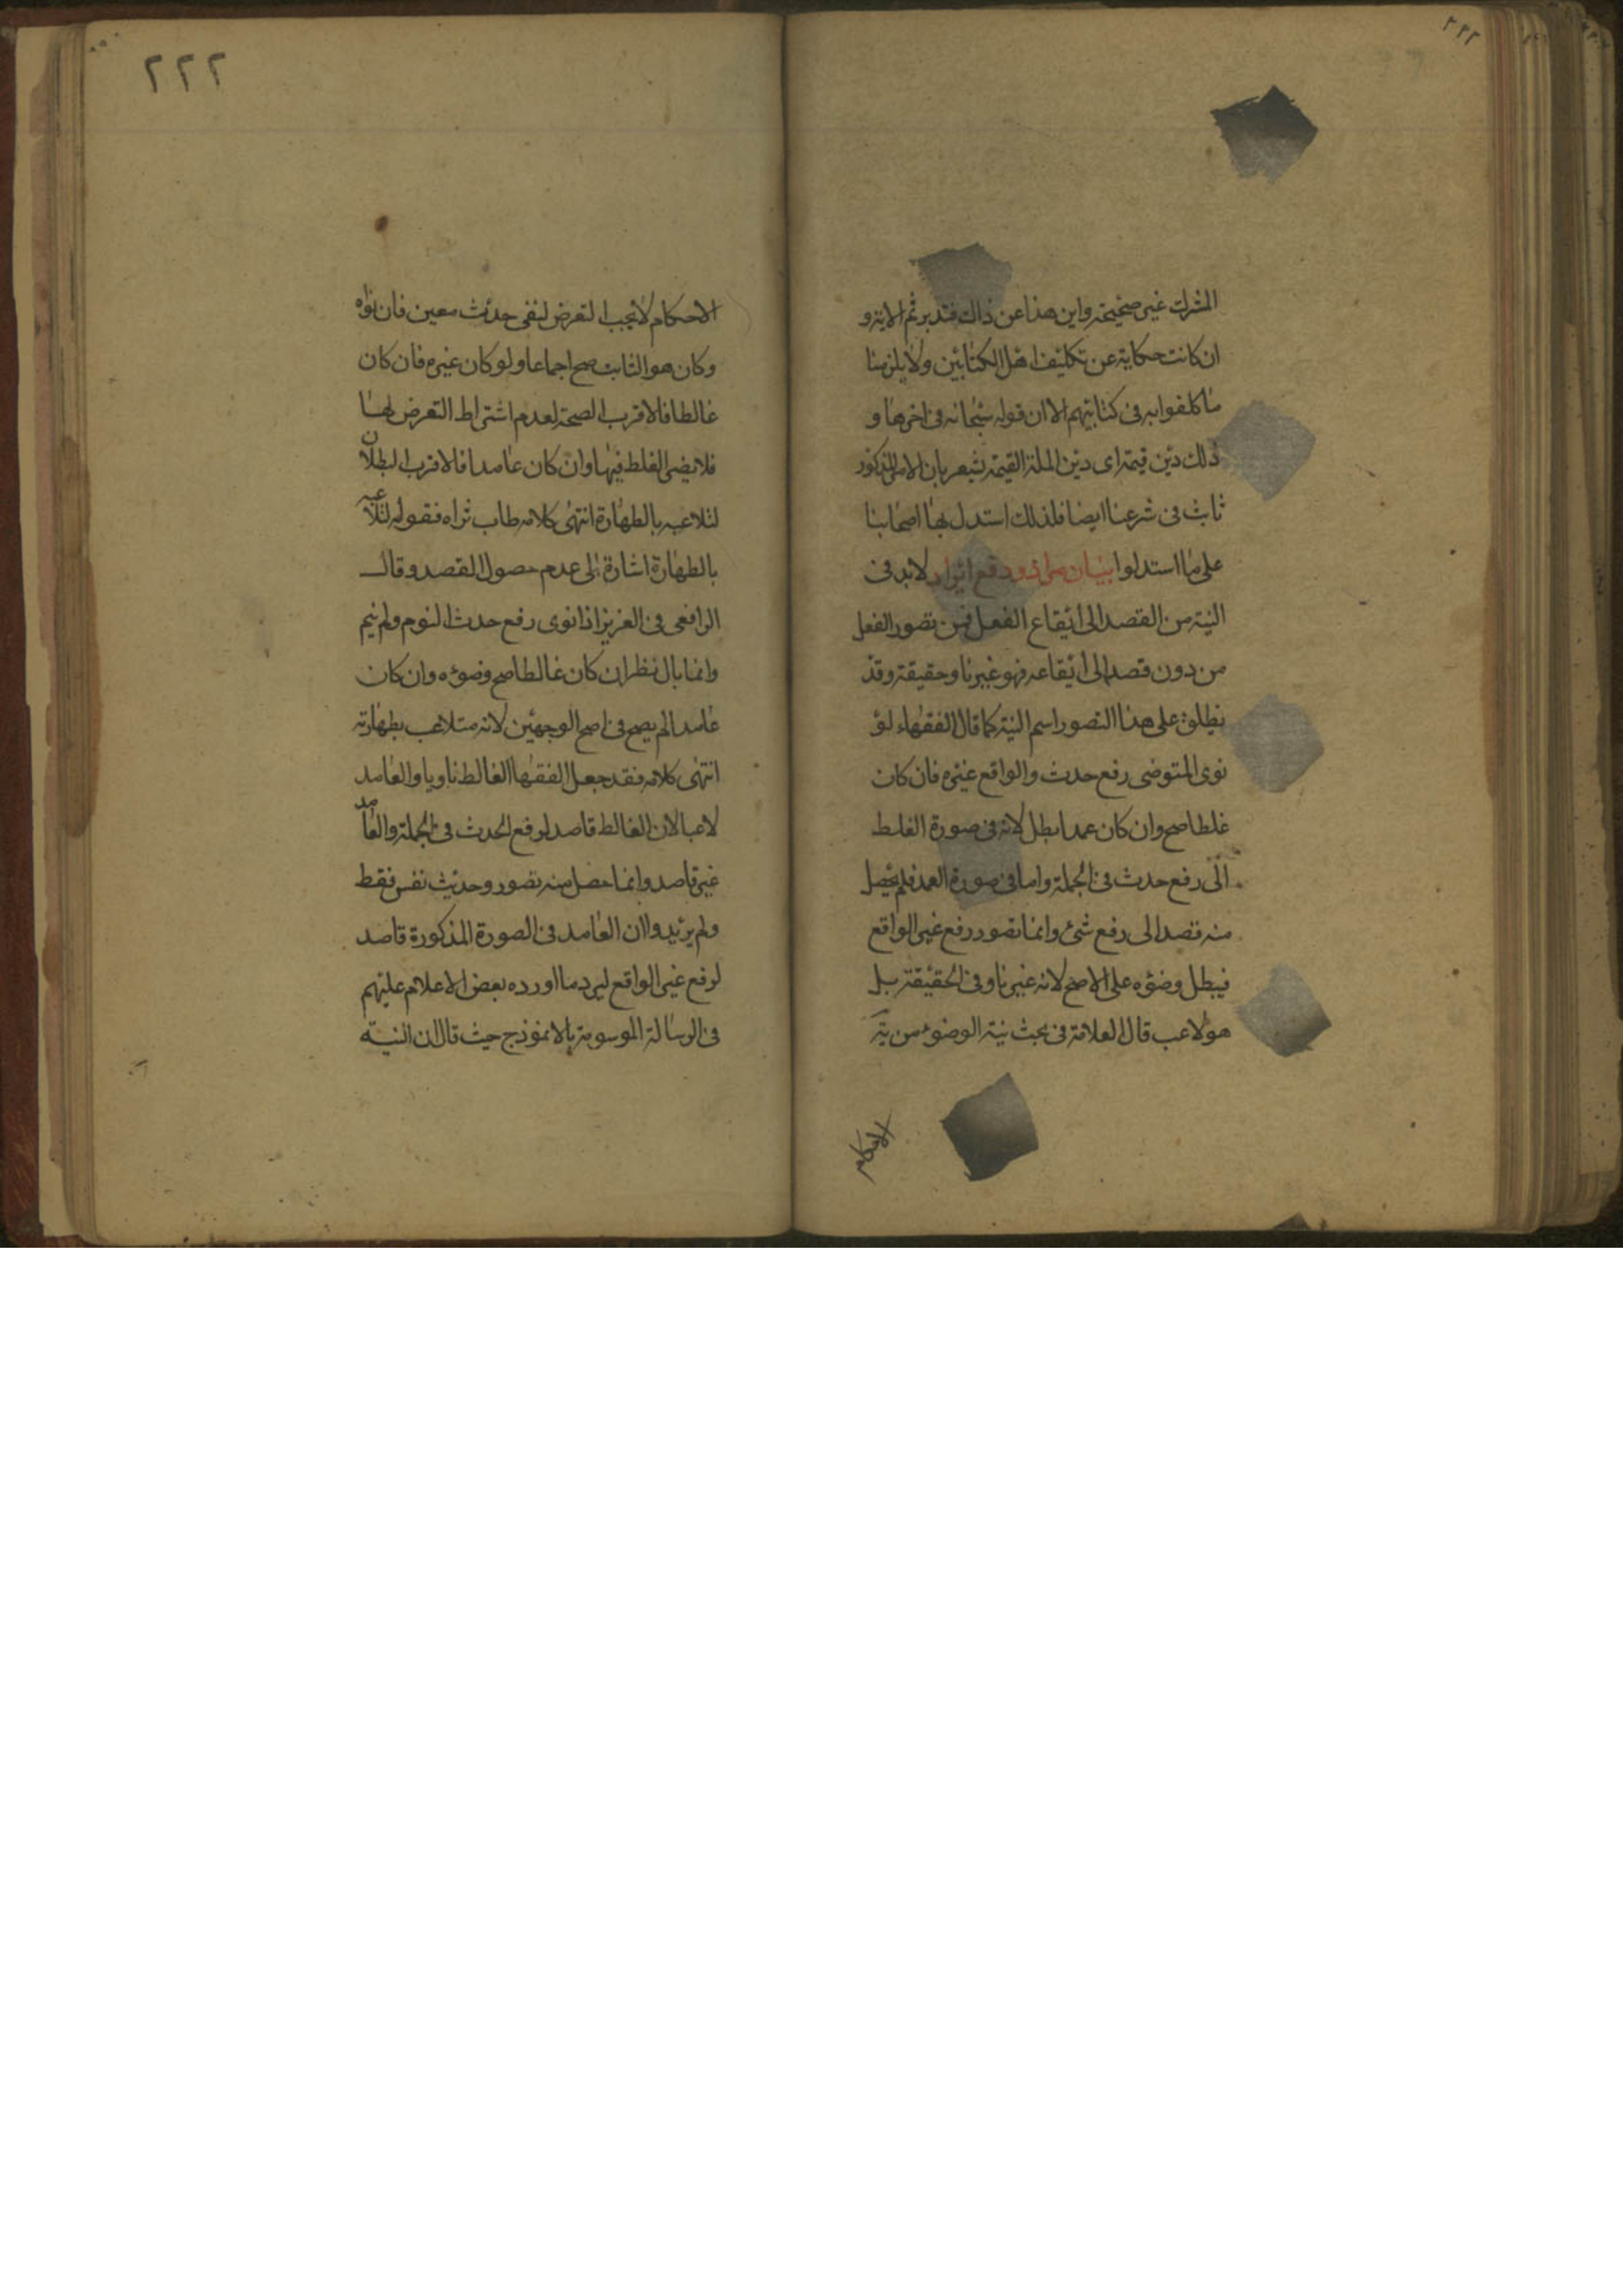 ٢٢٢
المشرك غير صحيحة واين هذا عن ذاك فتدبر ثم الاية و
ان كانت حكاية عن تكليف اهل الكتابين ولا يلزمنا
ما كلفوا به فى كتابيهم الا ان قوله سبحانه فى اخرها و
ذلك دين قيمة اى دين الملة القيمة يشعر بان الامر المذكور
ثابت فى شرعنا ايضا فلذلك استدل بها اصحابنا
على ما استدلوا بيان مراد ودفع ايراد لابد فى
النية من القصد الى ايقاع الفعل فمن تصور الفعل
من دون قصد الى ايقاعه فهو غير ناو حقيقة وقد
يطلق على هذا التصور اسم النية كما قال الفقهاء لو
نوى المتوضى رفع حدث والواقع غيره فان كان
غلطا صح وان كان عمدا بطل لانه فى صورة الغلط
الى رفع حدث فى الجملة واما فى صورة العمد فلم يحصل
منه قصد الى رفع شئ وانما تصور رفع غير الواقع
فيبطل وضوءه على الاصح لانه غير ناو فى الحقيقة بل
هو لاعب قال العلامة فى بحث نية الوضوء من
الاحكام
٢٢٢
الاحكام لا يجب التعرض لنفى حدث معين فان نواه
وكان هو الثابت صح اجماعا ولو كان غيره فان كان
غالطا فالاقرب الصحة لعدم اشتراط التعرض لها
فلا يضر الغلط فيها وان كان عامدا فالاقرب البطلان
لتلاعبه بالطهارة انتهى كلامه طاب ثراه فقوله لتلاعبه
بالطهارة اشارة الى عدم حصول القصد وقال
الرافعى فى العزيز اذا نوى رفع حدث النوم ولم ينم
وانما بال نظر ان كان غالطا صح وضوءه وان كان
عامدا لم يصح فى اصح الوجهين لانه متلاعب بطهارته
انتهى كلامه فقد جعل الفقها الغالط ناويا والعامد
لاعبا لان الغالط قاصد لرفع الحدث فى الجملة والعامد
غير قاصد وانما حصل منه تصور وحديث نفس فقط
ولم يريدوا ان العامد فى الصورة المذكورة قاصد
لرفع غير الواقع ليرد ما اورده بعض الاعلام عليهم
فى الرسالة الموسومة بالانموذج حيث قال ان النية